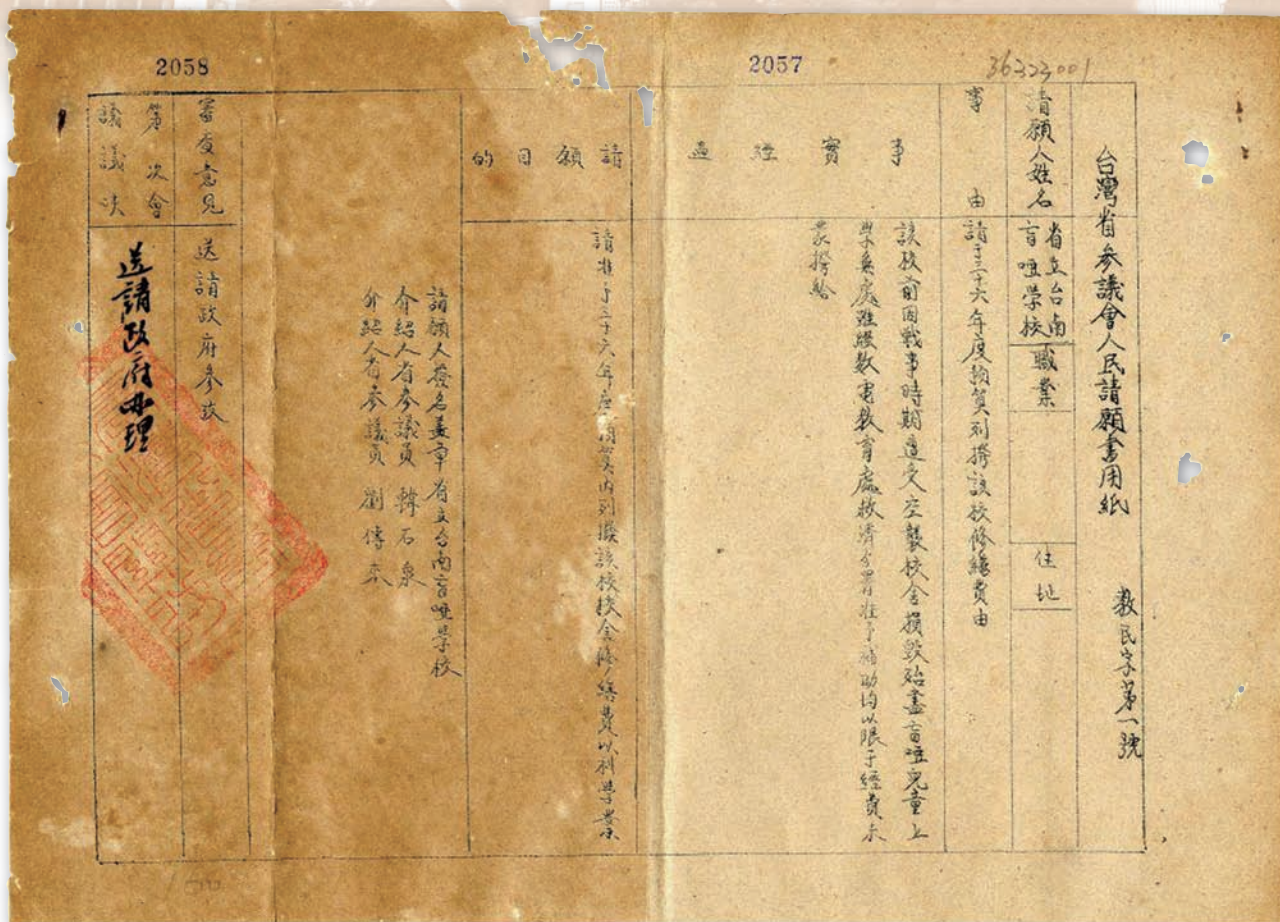 2058
2057
36323001
台灣省參議會人民請願書用紙
教民字第一號
請願人姓名
省立台南
盲啞學校
職業
住址
事由
請于三十六年度預算列撥該校修繕費由
事實經過
該校前因戰事時期遭受空襲校舍損毀殆盡盲啞兒童上
學無處雖經數電教育處救濟分署准予補助均以限于經費未
蒙撥給
請願目的
請准予三十六年度預算內列撥該校校舍修繕費以利學業
請願人簽名蓋章 省立台南盲啞學校
介紹人省參議員 韓石泉
介紹人省參議員 劉傳來
審查意見
送請政府參攷
第次會
議議決
送請政府办理